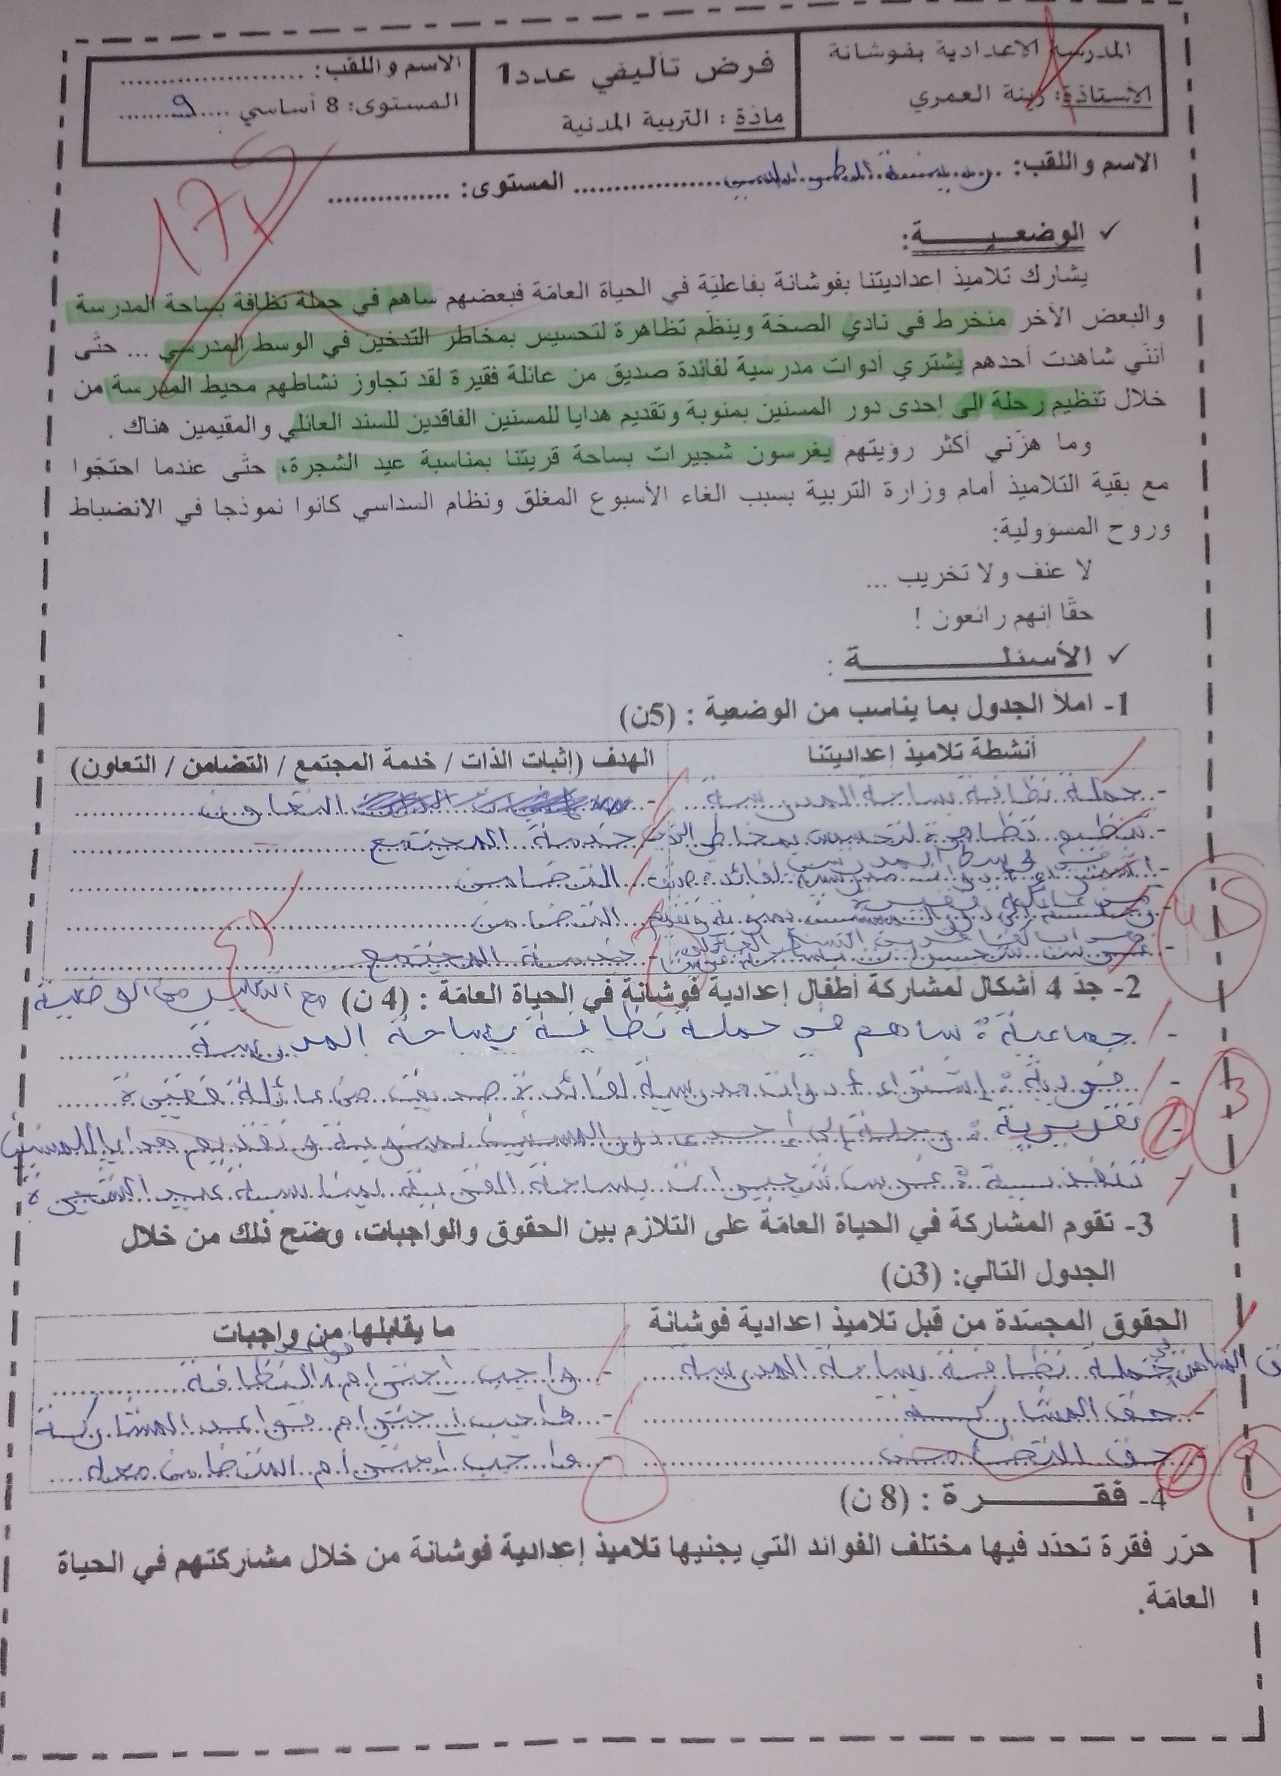 المدرسة الاعدادية بفوشانة
الأستاذة: زينة العمري
فرض تأليفي عدد1
مادة : التربية المدنية
الاسم و اللقب: ......................
المستوى: 8 أساسي ....9........
الاسم و اللقب: ........ المستوى: ...............
✓ الوضعيـــــة:
يشارك تلاميذ اعداديتنا بفوشانة بفاعليّة في الحياة العامّة فبعضهم ساهم في حملة نظافة بساحة المدرسة
والبعض الأخر منخرط في نادي الصحّة وينظّم تظاهرة لتحسيس بمخاطر التدخين في الوسط المدرسي ... حتّى
أنّني شاهدت أحدهم يشتري أدوات مدرسية لفائدة صديق من عائلة فقيرة لقد تجاوز نشاطهم محيط المدرسة من
خلال تنظيم رحلة الى إحدى دور المسنين بمنوبة وتقديم هدايا للمسنين الفاقدين للسند العائلي والمقيمين هناك .
وما هزّني أكثر رؤيتهم يغرسون شجيرات بساحة قريتنا بمناسبة عيد الشجرة، حتّى عندما احتجّوا
مع بقية التلاميذ أمام وزارة التربية بسبب الغاء الأسبوع المغلق ونظام السداسي كانوا نموذجا في الانضباط
وروح المسؤولية:
لا عنف ولا تخريب ...
حقّا إنهم رائعون !
✓ الأسئلـــــــــة :
1- املأ الجدول بما يناسب من الوضعية : (5ن)
أنشطة تلاميذ إعداديتنا
الهدف (إثبات الذات / خدمة المجتمع / التضامن / التعاون)
- حملة نظافة بساحة المدرسة
- التعاون
- تنظيم تظاهرة لتحسيس بمخاطر
خدمة المجتمع
التضامن
التضامن
- خدمة المجتمع
4,5
2- جد 4 أشكال لمشاركة أطفال إعدادية فوشانة في الحياة العامّة : (4 ن)
- جماعية: ساهم في حملة نظافة بساحة المدرسة
- فردية: إشتراء أدوات مدرسية لفائدة صديق من عائلة فقيرة
- تقريرية: رحلة إلى أحدى دور المسنين بمنوبة وتقديم هدايا للمسنين
- تنفيذية: غرس شجيرات بساحة القرية بمناسبة عيد الشجرة
3
3- تقوم المشاركة في الحياة العامّة على التلازم بين الحقوق والواجبات، وضّح ذلك من خلال
الجدول التالي: (3ن)
الحقوق المجسّدة من قبل تلاميذ اعدادية فوشانة
ما يقابلها من واجبات
حملة نظافة بساحة المدرسة
- واجب احترام النظافة
- حق المشاركة
- واجب احترام قواعد المشاركة
- حق التضامن
- واجب احترام التضامن معه
4- فقـــــــرة : (8 ن)
حرّر فقرة تحدّد فيها مختلف الفوائد التي يجنيها تلاميذ إعدادية فوشانة من خلال مشاركتهم في الحياة
العامّة.